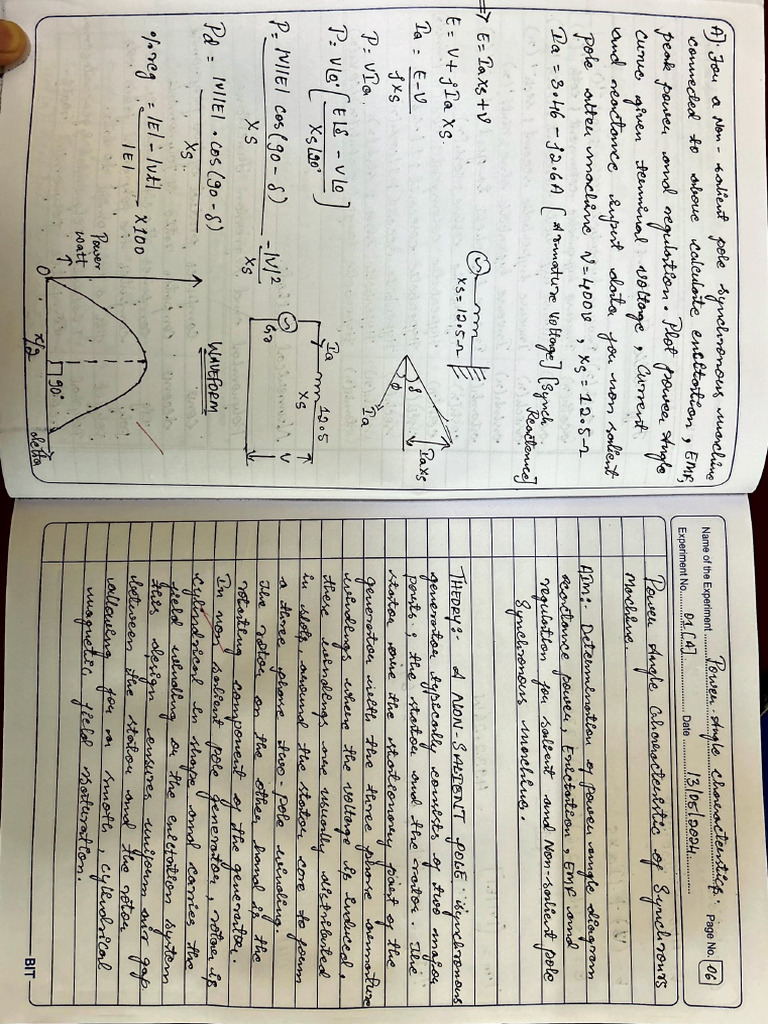 A). For a Non-salient pole synchronous machine
connected to above calculate exitation, EMF,
peak power and regulation. Plot power angle
curve given terminal voltage, Current
and reactance input data for non salient
pole alter machine V=400V, xs = 12.5Ω
Ia = 3.46 - j2.6A [Armature Voltage] [Synch Reactance]
xs = 12.5Ω
⇒ E = IaXs+V
E = V + jIa Xs
Ia = E-V
jXs
P = VIa
P = V⌊0 [ E⌊δ - V⌊0 ]
Xs⌊90°
P = |V||E| cos(90-δ) - |V|2
Xs Xs
Pd = |V||E| . cos(90-δ)
Xs
%reg = |E|-|Vt| X100
|E|
δ
φ
IaXs
Ia
Ia
12.5
Xs
V
WAVEFORM
Power
watt
0
π/2
90°
delta
Name of the Experiment Power-Angle characteristics. Page No. 06
Experiment No. 01[A] Date 13/05/2024
Power Angle Characteristic of Synchronous
Machine.
AIM:- Determination of power angle diagram
reactance power, Exictation, EMF and
regulation for salient and Non-salient pole
Synchronous machine.
THEORY:- A NON-SALIENT POLE: synchronous
generator typically consists of two major
parts: the stator and the rotor. The
stator are the stationary part of the
generator with the three phase armature
windings where the voltage is induced,
these windings are usually distributed
in slots, around the stator core to form
a three phase two-pole winding.
The rotor on the other hand is the
rotating component of the generator.
In non salient pole generator, rotor is
cylindrical in shape and carries the
field winding or the exicitation system
this design ensures uniform air gap
between the stator and the rotor
allowing for a smooth, cylindrical
magnetic field saturation.
BIT